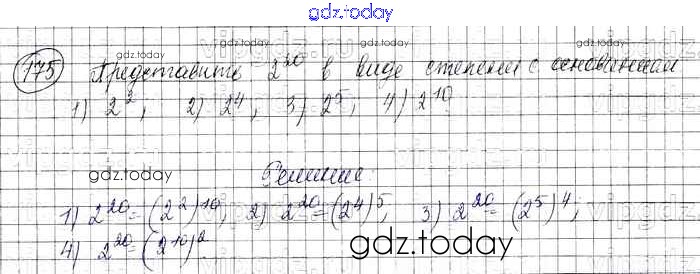 gdz.today
175 Представить 2²⁰ в виде степени с основанием
1) 2², 2) 2⁴, 3) 2⁵, 4) 2¹⁰
gdz.today
Решение
1) 2²⁰=(2²)¹⁰, 2) 2²⁰=(2⁴)⁵, 3) 2²⁰=(2⁵)⁴,
4) 2²⁰=(2¹⁰)²
gdz.today